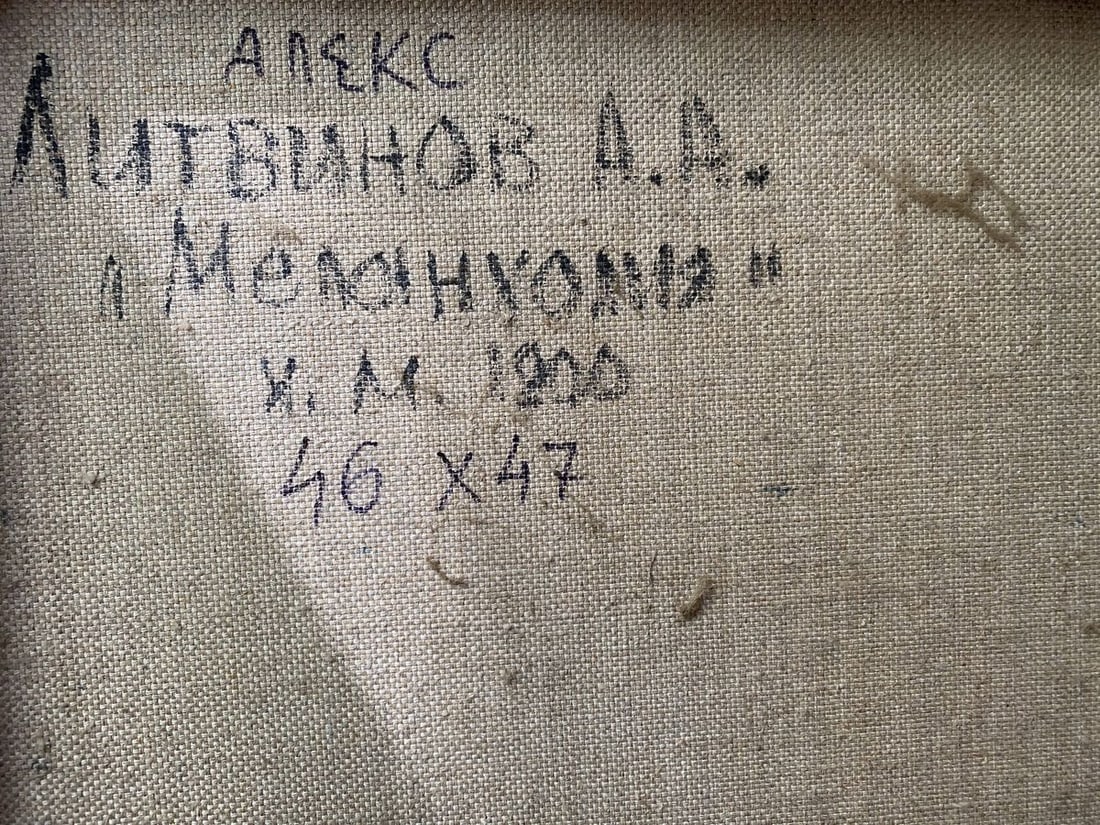 АЛЕКС
Литвинов А.А.
"Меланхолия"
х.м.
46 х 47